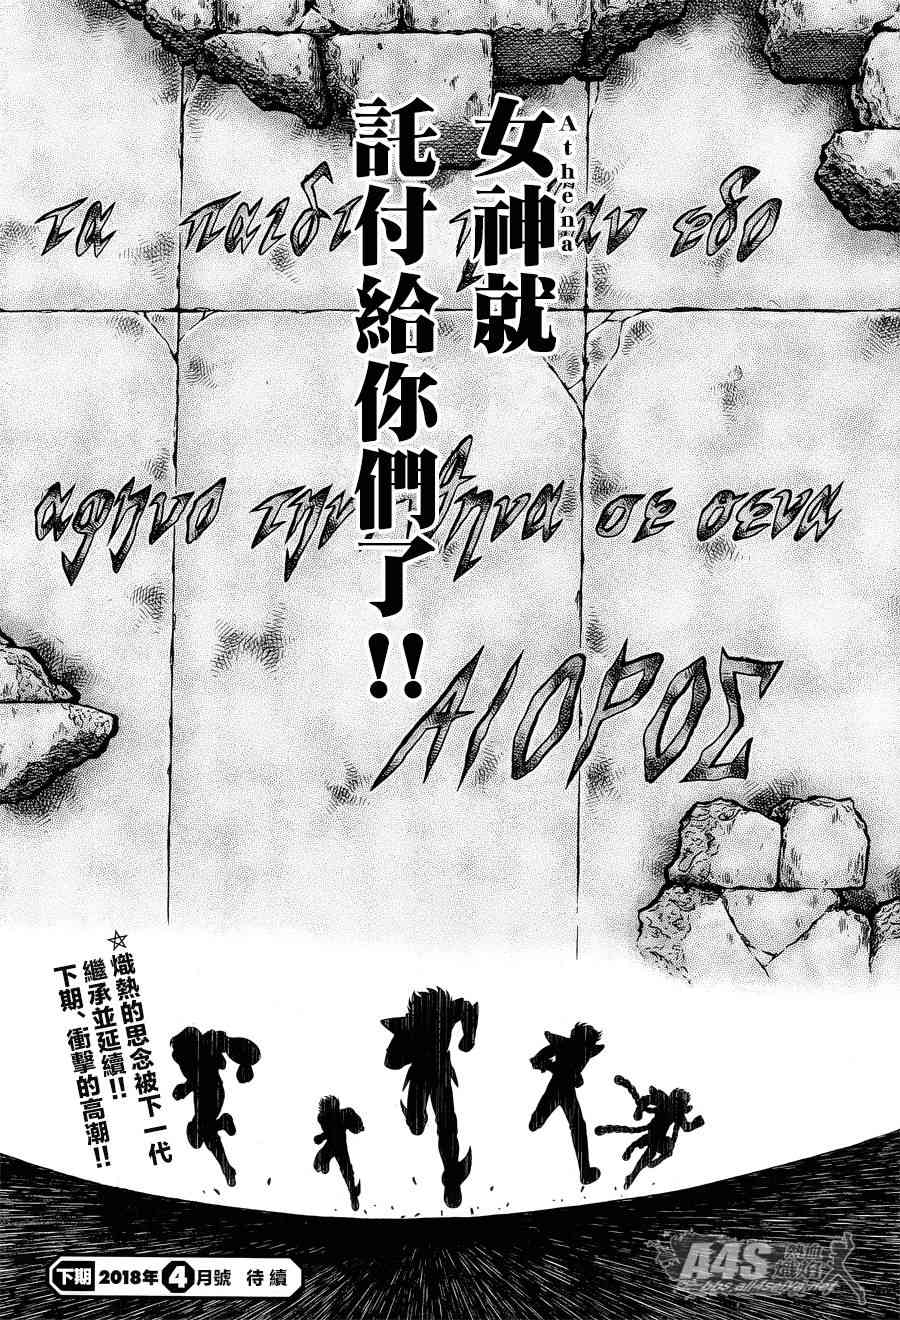 女神就
Athena
託付給你們了!!
τα παιδ
αν εδο
αφηνο την
ηνα σε σενα
ΑΙΟΡΟΣ
☆熾熱的思念被下一代
繼承並延續!!
下期、衝擊的高潮!!
下期 2018年4月號 待續
A4S 熱血